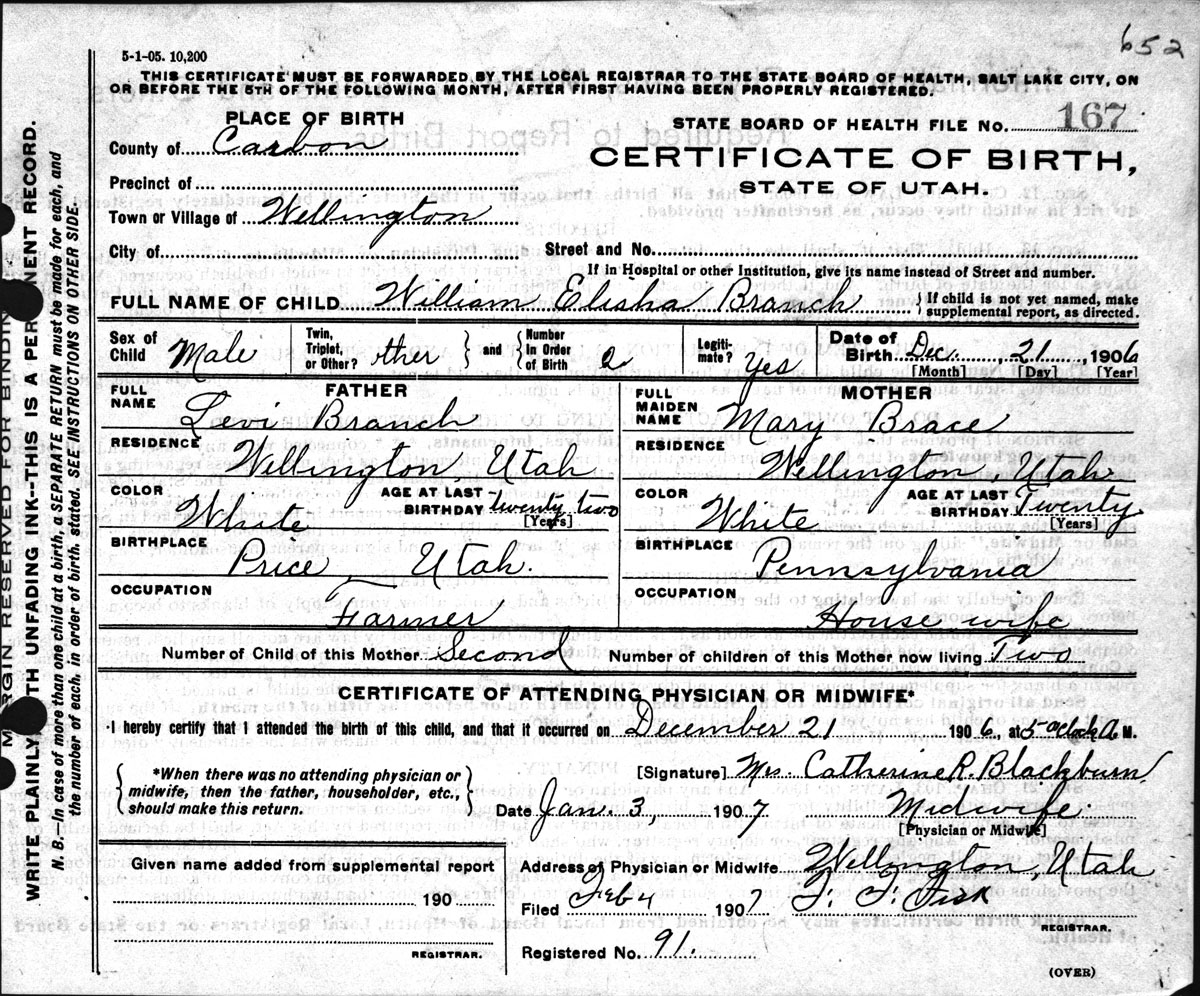 652
5-1-05. 10,200
THIS CERTIFICATE MUST BE FORWARDED BY THE LOCAL REGISTRAR TO THE STATE BOARD OF HEALTH, SALT LAKE CITY, ON
OR BEFORE THE 5TH OF THE FOLLOWING MONTH, AFTER FIRST HAVING BEEN PROPERLY REGISTERED.
PLACE OF BIRTH
STATE BOARD OF HEALTH FILE No. 167
County of Carbon
CERTIFICATE OF BIRTH,
Precinct of
STATE OF UTAH.
Town or Village of Wellington
City of
Street and No.
If in Hospital or other Institution, give its name instead of Street and number.
FULL NAME OF CHILD William Elisha Branch { If child is not yet named, make
supplemental report, as directed.
Sex of Child Male Twin, Triplet, or Other? other and Number In Order of Birth 2 Legiti-mate? Yes Date of Birth Dec. 21 1906
[Month] [Day] [Year]
FATHER
FULL NAME Levi Branch
RESIDENCE Wellington, Utah
COLOR White AGE AT LAST BIRTHDAY twenty two
[Years]
BIRTHPLACE Price Utah.
OCCUPATION Farmer
MOTHER
FULL MAIDEN NAME Mary Brace
RESIDENCE Wellington, Utah
COLOR White AGE AT LAST BIRTHDAY Twenty
[Years]
BIRTHPLACE Pennsylvania
OCCUPATION House wife
Number of Child of this Mother Second Number of children of this Mother now living Two
CERTIFICATE OF ATTENDING PHYSICIAN OR MIDWIFE*
I hereby certify that I attended the birth of this child, and that it occurred on December 21 1906, at 5 oclock A M.
*When there was no attending physician or
midwife, then the father, householder, etc.,
should make this return.
[Signature] Mrs. Catherine R. Blackburn
Date Jan. 3, 1907 Midwife
[Physician or Midwife]
Given name added from supplemental report
190
REGISTRAR.
Address of Physician or Midwife Wellington, Utah
Filed Feb 4 1907 F. F. Fisk
REGISTRAR.
Registered No. 91.
(OVER)
MARGIN RESERVED FOR BINDING
WRITE PLAINLY WITH UNFADING INK--THIS IS A PERMANENT RECORD.
N. B.—In case of more than one child at a birth, a SEPARATE RETURN must be made for each, and
the number of each, in order of birth, stated. SEE INSTRUCTIONS ON OTHER SIDE.